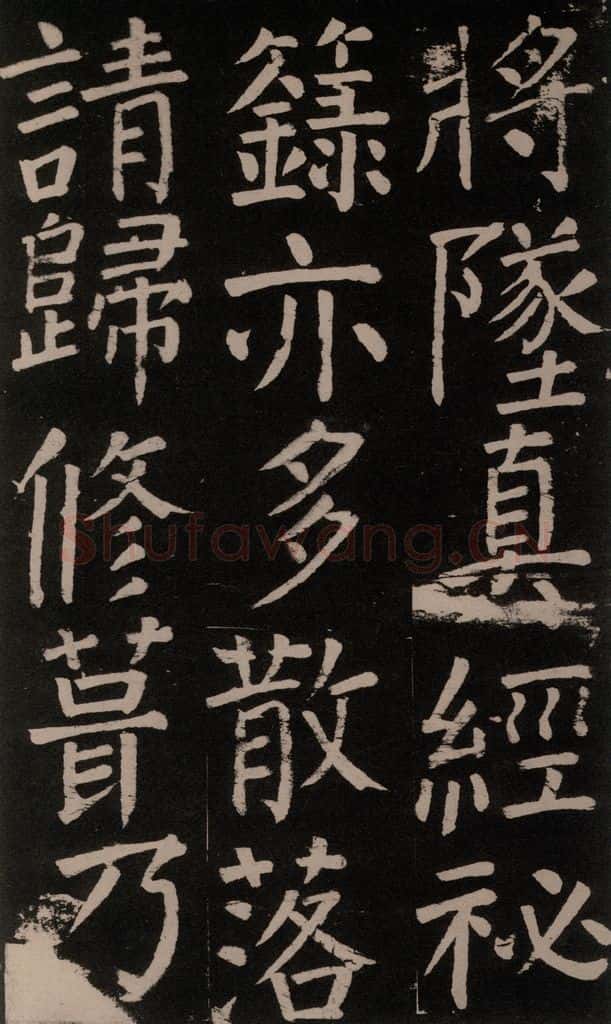 將墜真經祕
籙亦多散落
請歸修葺乃
Shufawang.CN